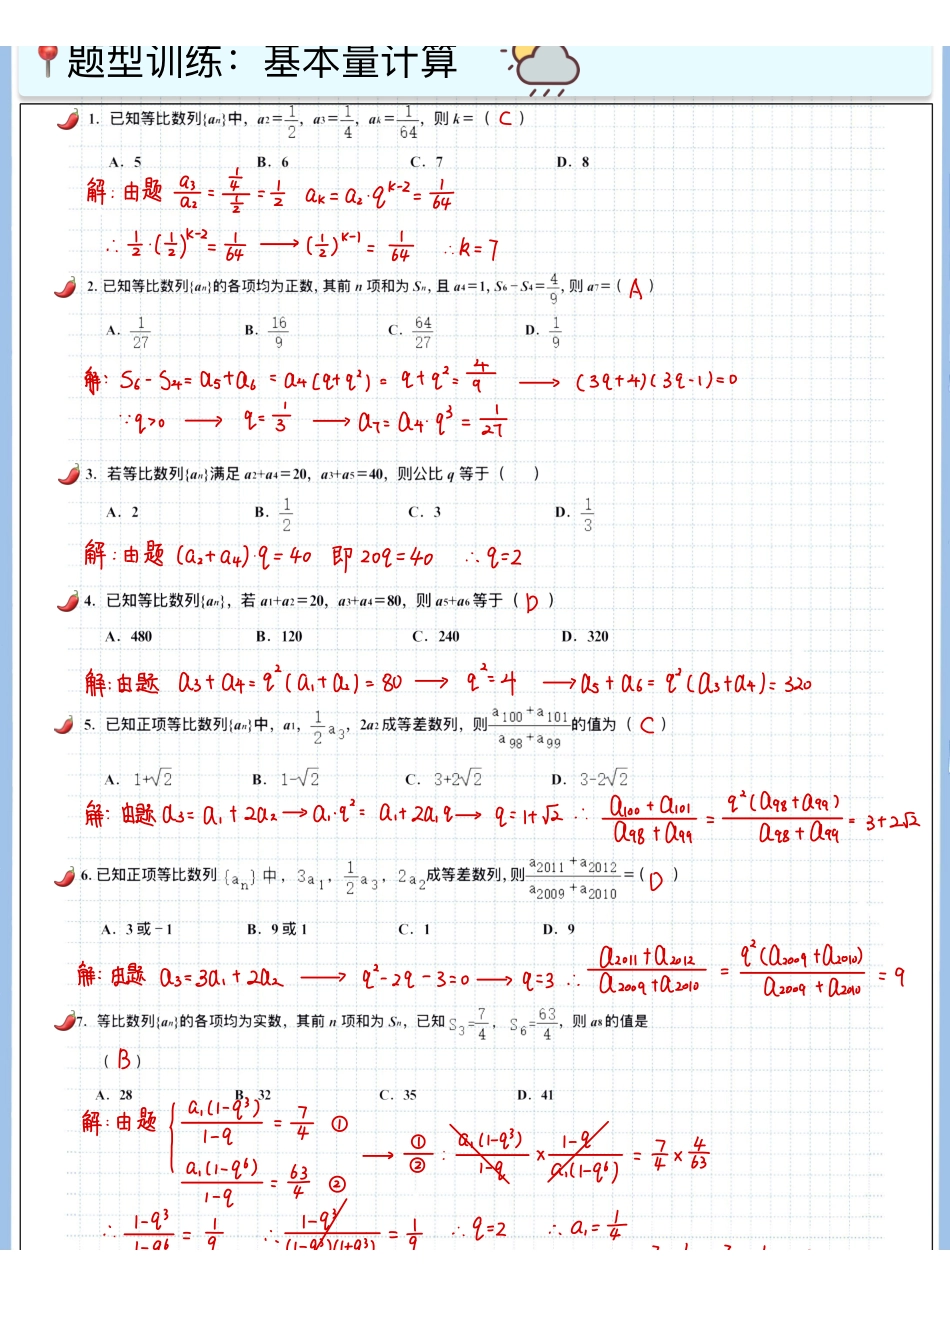 题型训练：基本量计算
1. 已知等比数列{an}中，a2=1/2，a3=1/4，ak=1/64，则 k=（ C ）
A．5 B．6 C．7 D．8
解：由题 a3/a2 = (1/4)/(1/2) = 1/2 ak=a2·q^(k-2)=1/64
∴ 1/2·(1/2)^(k-2)=1/64 ⟶ (1/2)^(k-1)=1/64 ∴k=7
2. 已知等比数列{an}的各项均为正数，其前 n 项和为 Sn，且 a4=1，S6-S4=4/9，则 a7=（ A ）
A．1/27 B．16/9 C．64/27 D．1/9
解：S6-S4=a5+a6=a4(q+q²)=q+q²=4/9 ⟶ (3q+4)(3q-1)=0
∵q>0 ⟶ q=1/3 ⟶ a7=a4·q³=1/27
3. 若等比数列{an}满足 a2+a4=20，a3+a5=40，则公比 q 等于（ ）
A．2 B．1/2 C．3 D．1/3
解：由题 (a2+a4)·q=40 即 20q=40 ∴q=2
4. 已知等比数列{an}，若 a1+a2=20，a3+a4=80，则 a5+a6 等于（ D ）
A．480 B．120 C．240 D．320
解：由题 a3+a4=q²(a1+a2)=80 ⟶ q²=4 ⟶ a5+a6=q²(a3+a4)=320
5. 已知正项等比数列{an}中，a1，1/2 a3，2a2 成等差数列，则 (a100+a101)/(a98+a99) 的值为（ C ）
A．1+√2 B．1-√2 C．3+2√2 D．3-2√2
解：由题 a3=a1+2a2 ⟶ a1·q²=a1+2a1q ⟶ q=1+√2 ∴ (a100+a101)/(a98+a99) = q²(a98+a99)/(a98+a99) = 3+2√2
6. 已知正项等比数列 {an} 中，3a1，1/2 a3，2a2 成等差数列，则 (a2011+a2012)/(a2009+a2010) =（ D ）
A．3 或-1 B．9 或 1 C．1 D．9
解：由题 a3=3a1+2a2 ⟶ q²-2q-3=0 ⟶ q=3 ∴ (a2011+a2012)/(a2009+a2010) = q²(a2009+a2010)/(a2009+a2010) = 9
7. 等比数列{an}的各项均为实数，其前 n 项和为 Sn，已知 S3=7/4，S6=63/4，则 a8 的值是
（ B ）
A．28 B．32 C．35 D．41
解：由题 { a1(1-q³)/(1-q) = 7/4 ①
a1(1-q⁶)/(1-q) = 63/4 ②
⟶ ①/②：a1(1-q³)/(1-q) × (1-q)/a1(1-q⁶) = 7/4 × 4/63
∴ (1-q³)/(1-q⁶) = 1/9 ∴ (1-q³)/(1-q³)(1+q³) = 1/9 ∴q=2 ∴a1=1/4